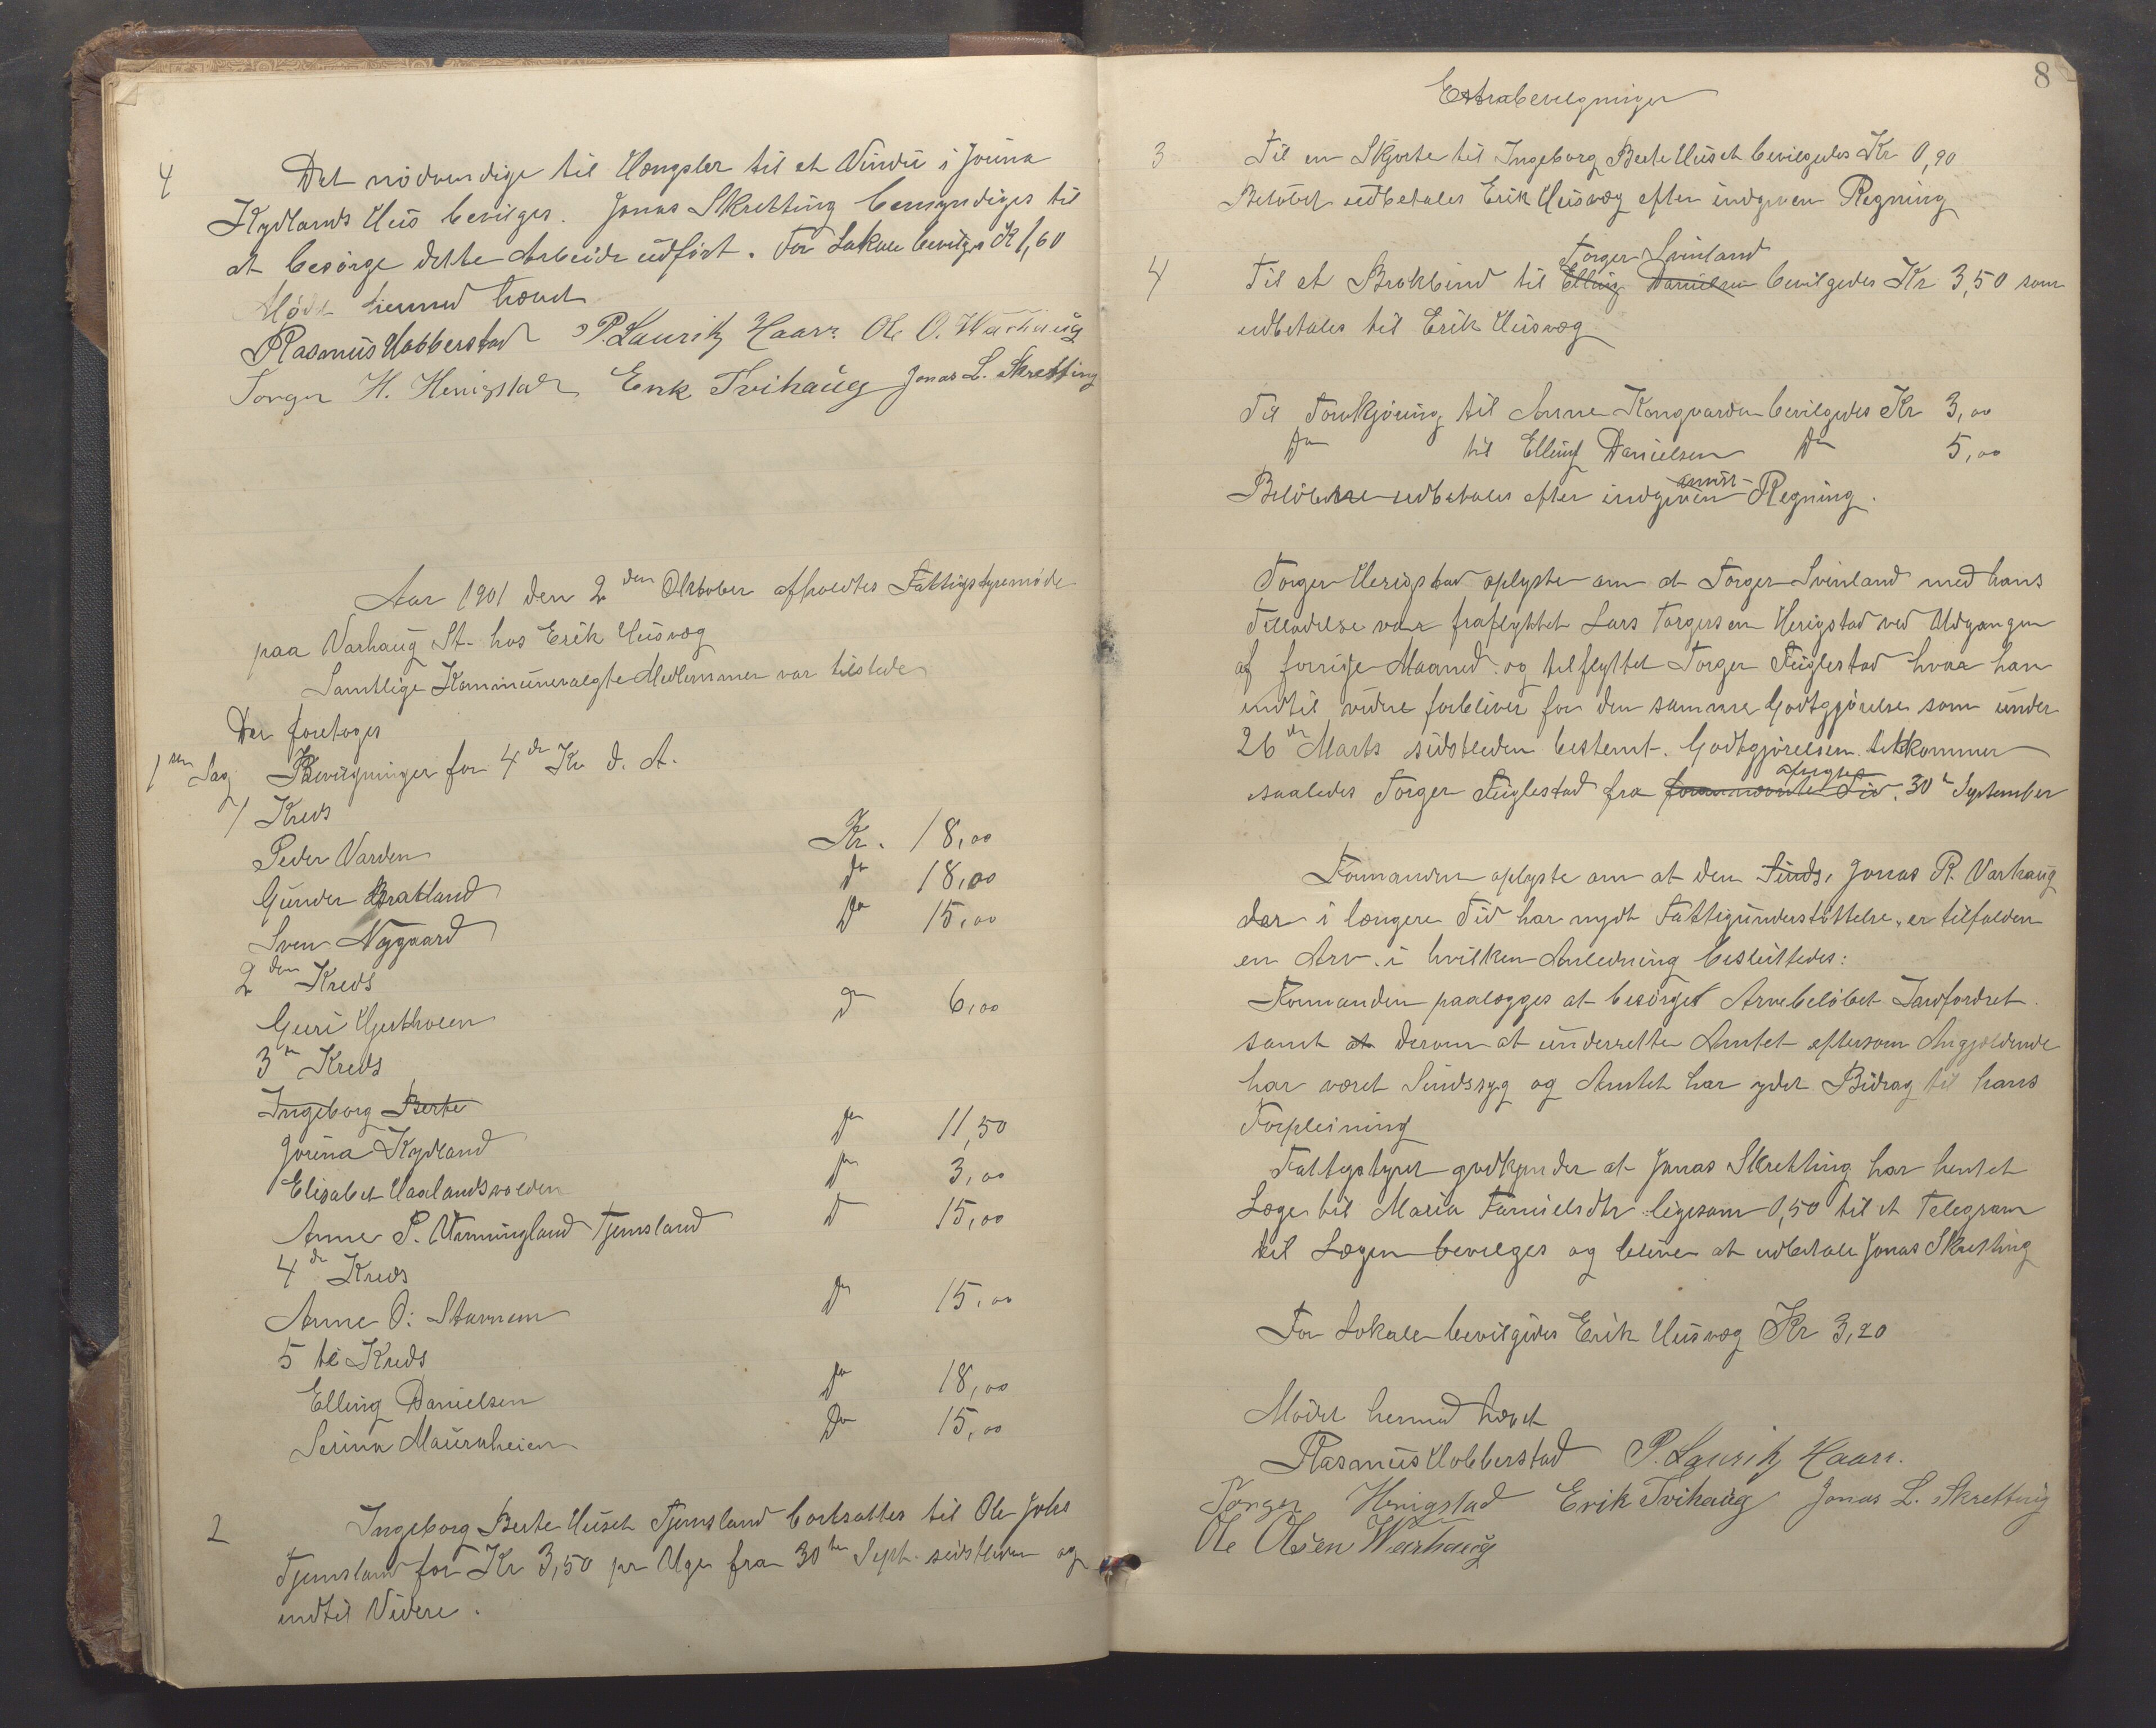 4 Det nödvendige til Hængsler til et Vindu i Jorina
Kydlands Hus bevilges. Jonas Skretting bemyndiges til
at besörge dette Arbeide udfört. For Lokale bevilges K 1,60
Mödet hermed hævet
Rasmus Hobberstad P. Lauritz Haar. Ole O. Warhaug
Torger H. Herigstad Erik Tvihaug Jonas L. Skretting
Aar 1901 den 2den Oktober afholdtes Fattigstyremöde
paa Varhaug St. hos Erik Husvæg
Samtlige Kommunevalgte Medlemmer var tilstede
Der foretoges
1ste Sag Bevilgninger for 4de Kv. d. A.
1 Kreds
Peder Varden Kr. 18,00
Gunder Bratland Do 18,00
Sven Nygaard Do 15,00
2den Kreds
Guri Hjerthoien Do 6,00
3die Kreds
Ingeborg Berte
Jorina Kydland Do 11,50
Elisabet Haalandsvolden Do 3,00
Anne P. Værningland Tjemsland Do 15,00
4de Kreds
Anne O. Stavnem Do 15,00
5te Kreds
Elling Danielsen Do 18,00
Serina Maurnheien Do 15,00
2 Ingeborg Berte Huseb Tjemsland bortsattes til Ole Johs
Tjemsland for Kr 3,50 pr Uge fra 30te Sept. sidstleden og
indtil Videre.
8
Extrabevilgninger
3 Til en Skjorte til Ingeborg Berte Huseb bevilgedes Kr 0,90
Belöbet udbetales Erik Husvæg efter indgiven Regning
Torger Svinland
4 Til et Brokbind til Elling Danielsen bevilgedes Kr 3,50 som
udbetales til Erik Husvæg
Til Torvkjöring til Anne Kongvarden bevilgedes Kr 3,00
Do til Elling Danielsen Do 5,00
anvist
Belöbene udbetales efter indgiven Regning.
Torger Herigstad oplyste om at Torger Svinland med hans
Tilladelse var fraflyttet Lars Torgersen Herigstad ved Udgangen
af forrige Maaned og tilflyttet Torger Fuglestad hvor han
indtil videre forbliver for den samme Godtgjörelse som under
26de Marts sidstleden bestemt. Godtgjörelsen tilkommer
afvigte
saaledes Torger Fuglestad fra forannævnte Tid. 30te September
Formanden oplyste om at den Sinds. Jonas R. Varhaug
der i længere Tid har nydt Fattigunderstöttelse, er tilfalden
en Arv. i hvilken Anledning besluttedes:
Formanden paalægges at besörge Arvebelöbet Indfordret
samt at derom at underrette Amtet eftersom Angjeldende
har været Sindssyg og Amtet har ydet Bidrag til hans
Forpleining
Fattigstyret godkjender at Jonas Skretting har hentet
Læge til Maria Danielsdtr ligesom 0,50 til et Telegram
til Lægen bevilges og bliver at udbetale Jonas Skretting
For Lokale bevilgedes Erik Husvæg Kr 3,20
Mödet hermed hævet
Rasmus Hobberstad P. Lauritz Haar.
Torger Herigstad Erik Tvihaug Jonas L. Skretting
Ole Olsen Warhaug